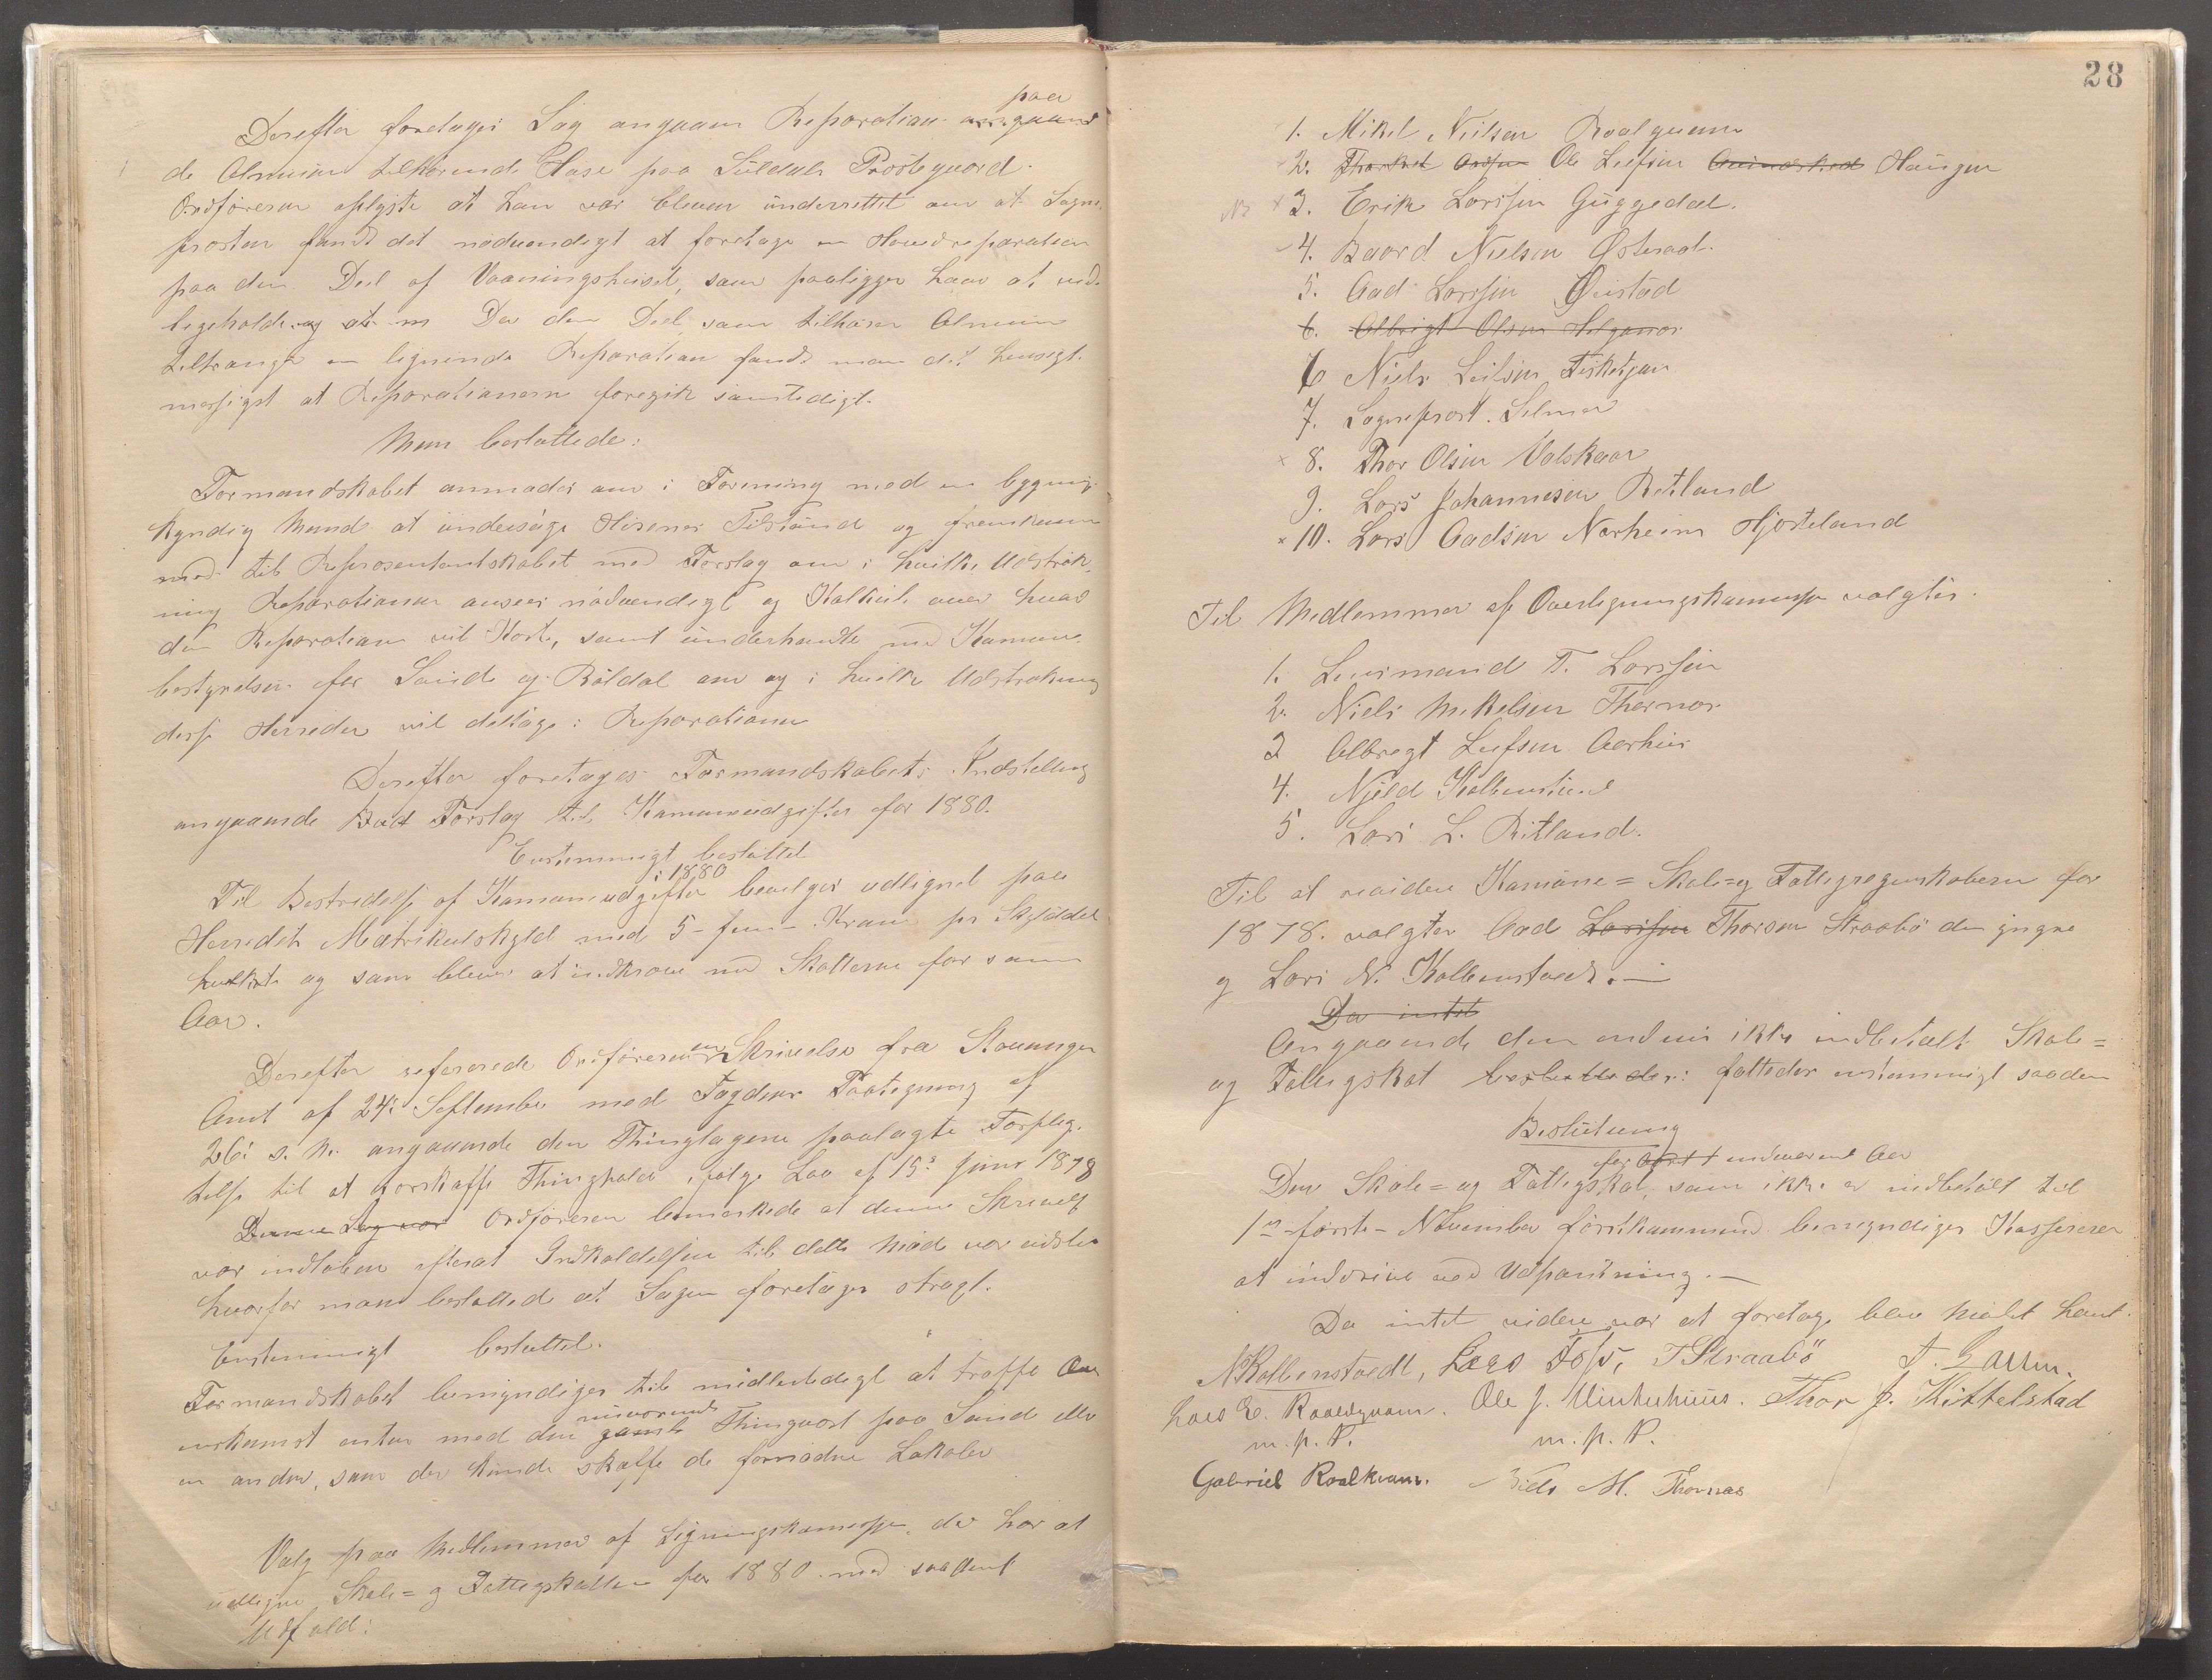 paa
Derefter foretages Sag angaaen Reparation angaaend
de Almuen tilhørende Huse paa Suldals Præstegaard.
Ordføreren oplyste at han var bleven underrettet om at Sogne-
presten fandt det nødvendigt at foretage en Hovedreparation
paa den Deel af Vaaningshuset, som paaligger ham at ved-
ligeholde og at en Da den Deel, som tilhører Almuen
tiltrænger en lignende Reparation fandt man det hensigt-
mæssigst at Reparationerne foregik samtidigt.
Man besluttede:
Formandskabet anmodes om i Forening med en bygnings-
kyndig Mand at undersøge Husenes Tilstand og fremkomme
med til Repræsentantskabet med Forslag om i hvilke Udstræk-
ning Reparationen ansees nødvendigt og Kalkule over hvad
den Reparation vil koste, samt underhandle med Kommune-
bestyrelsen for Sand og Röldal om og i hvilke Udstrækning
disse Herreder vil deltage i Reparationen
Derefter foretages Formandskabets Indstilling
angaaende Bud Forslag til Kommuneudgifter for 1880.
Enstemmigt besluttet
i 1880
Til Bestridelse af Kommuneudgifter bevilges udlignet paa
Herredets Matrikulskyld med 5 - fem - Kroner pr Skylddaler
hvilket og som bliver at indkræve med Skatterne for samme
Aar.
Derefter refererede Ordføreren en Skrivelse fra Stavanger
Amt af 24de September med Fogdens Paategning af
26de s. M. angaaende den Thinglagene paalagte Forplig-
telse til at forskaffe Thinglokale ifølge Lov af 15de Juni 1878
Denne Sag var Ordføreren bemærkede at denne Skrivelse
var indløben efterat Indkaldelsen til dette Møde var udstedt
hvorfor man besluttede at Sagen foretages stragt.
Enstemmigt besluttet.
Formandskabet bemyndiges til midlertidigt at træffe Over
nuværende
enskomst enten med den gamle Thingvært paa Sand eller
en anden, som der kunde skaffe de fornødne Lokaler
Valg paa Medlemmer af Ligningskommissjon, der har at
udligne Skole= og Fattigskatten for 1880 med saadant
Udfald:
28
1. Mikel Nielsen Roalqvam
2. Thorkel Ole Leifsen Haugen
No 3. Erik Larssen Guggedal.
4. Baard Nielsen Østeraat.
5. Aad Larssen Quistad
6. Albrigt Olsen Helganæs
6 Niels Leifsen Fisketjøn
7. Sogneprest Selmer
8. Thor Olsen Valskaar
9. Lars Johannesen Ritland
10. Lars Aadsen Norheim Hjorteland
Til Medlemmer af Overligningskommissjon valgtes.
1. Lensmand T. Larssen
2. Niels Mikelsen Thornæs
3 Albregt Leifsen Aarhus
4. Njeld Kolbenstvedt
5. Lars L. Ritland.
Til at revidere Kommune= Skole= og Fattigregnskaberne for
1878 valgtes Aad Larssen Thorsen Straabö den yngre
og Lars N. Kolbenstvedt.—
Da intet
Angaaende den endnu ikke indbetalt Skole=
og Fattigskat besluttedes: fattedes enstemmigt saadan
Beslutning
for indeværende Aar
Den Skole= og Fattigskat, som ikke er indbetalt til
1ste første - November førstkommende bemyndiges Kasserer
at inddrive ved Udpantning.—
Da intet videre var at foretage blev Mødet hævet.
N Kolbenstvedt, Lars Foss, T Straabö
Lars E. Roaldqvam. Ole J. Vinterhuus. Thor J. Kittelstad
m. p. P. m. p. P.
Gabriel Roalkvam. Niels M. Thornæs